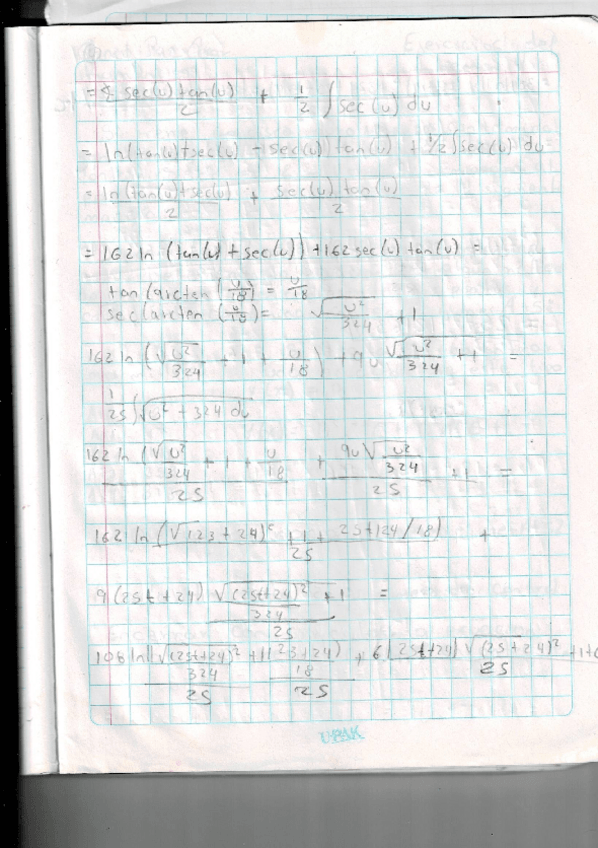 = sec(u) tan(u) / 2 + 1/2 ∫ sec(u) du
= ln(tan(u)+sec(u) - sec(u)) tan(u) + 1/2 ∫sec(u) du
= ln(tan(u)+sec(u) / 2 + sec(u) tan(u) / 2
= 162 ln (tan(u) + sec(u)) + 162 sec(u) tan(u) =
tan(arctan(u/18) = u/18
sec(arcten(u/18) = √u²/324 + 1
162 ln (√u²/324 + 1 + u/18) + 9u √u²/324 + 1 =
1/25 ∫√u² + 324 du
162 ln (√u²/324 + 1 + u/18 / 25 + 9u√u²/324 + 1 / 25 =
162 ln (√(23 + 24)² + 1 + 25t+24/18) / 25 +
9(25t+24) √(25t+24)²/324 + 1 / 25 =
108 ln(|√(25t+24)²/324 + 1| 25+24)/18 / 25 , 6(25t+24) √(25+24)² +1+C / 25